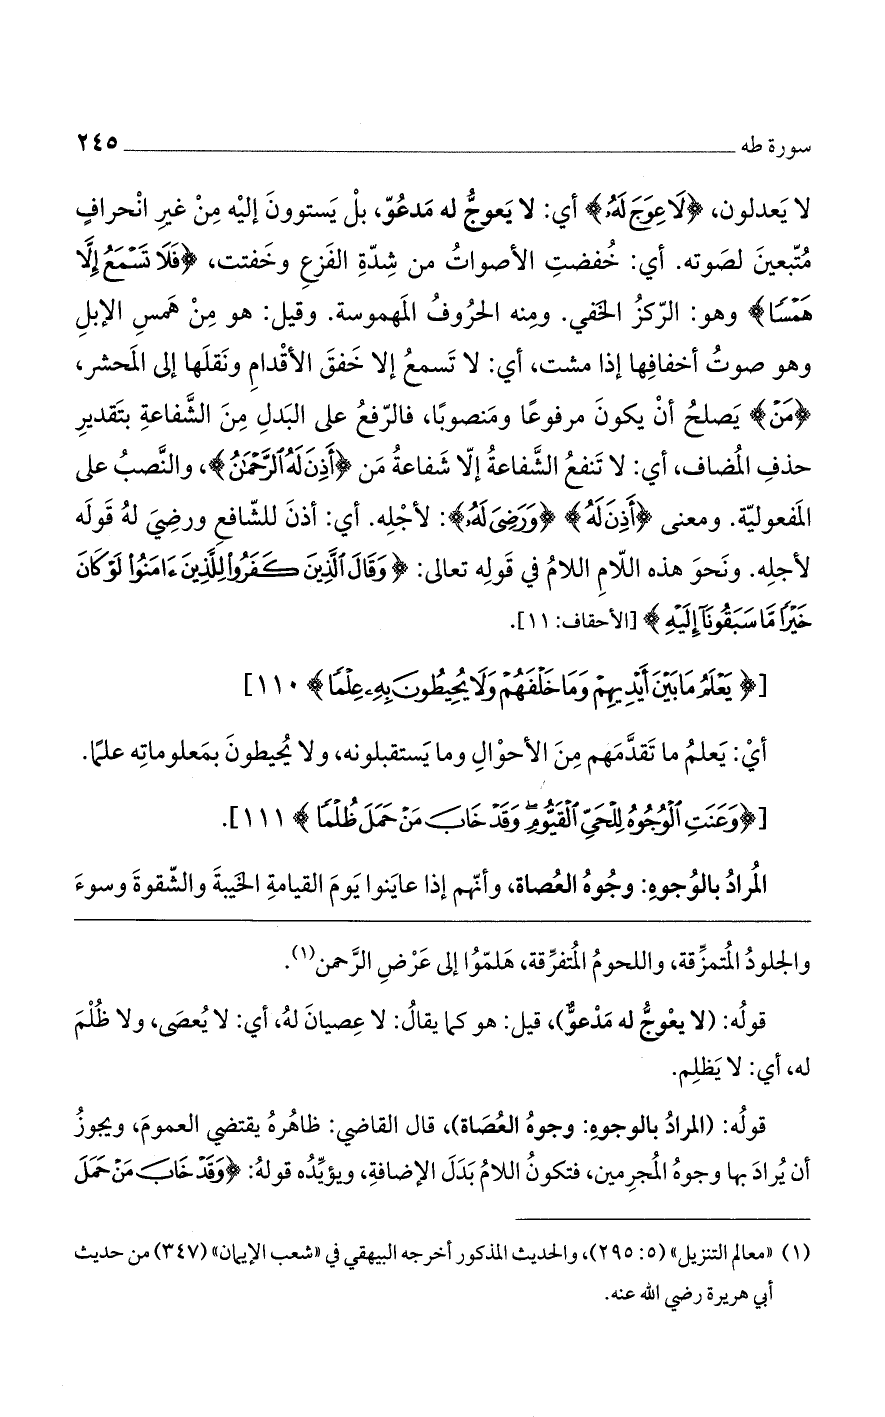 سورة طه ٢٤٥
لا يَعدلون، ﴿لَا عِوَجَ لَهُۥ﴾ أي: لا يَعوجُّ له مَدعُوّ، بلْ يَستوونَ إليْه مِنْ غيرِ انْحرافٍ
مُتّبعينَ لصَوته. أي: خُفضتِ الأصواتُ من شِدّةِ الفَزعِ وخَفتت، ﴿فَلَا تَسْمَعُ إِلَّا
هَمْسًا﴾ وهو: الرّكزُ الخَفي. ومِنه الحرُوفُ المَهموسة. وقيل: هو مِنْ هَمسِ الإبلِ
وهو صوتُ أخفافِها إذا مشت، أي: لا تَسمعُ إلا خَفقَ الأقْدامِ ونَقلَها إلى المَحشر،
﴿مَنْ﴾ يَصلحُ أنْ يكونَ مرفوعًا ومَنصوبًا، فالرّفعُ على البَدلِ مِنَ الشَّفاعةِ بتَقديرِ
حذفِ المُضاف، أي: لا تَنفعُ الشَّفاعةُ إلّا شَفاعةُ مَن ﴿أَذِنَ لَهُ ٱلرَّحْمَٰنُ﴾، والنَّصبُ على
المَفعوليّة. ومعنى ﴿أَذِنَ لَهُ﴾ ﴿وَرَضِىَ لَهُۥ﴾: لأجْلِه. أي: أذنَ للشّافعِ ورضِيَ لهُ قَولَه
لأجلِه. ونَحوَ هذه اللّامِ اللامُ في قَولِه تعالى: ﴿وَقَالَ ٱلَّذِينَ كَفَرُوا۟ لِلَّذِينَ ءَامَنُوا۟ لَوْ كَانَ
خَيْرًا مَّا سَبَقُونَآ إِلَيْهِ﴾ [الأحقاف: ١١].
[﴿يَعْلَمُ مَا بَيْنَ أَيْدِيهِمْ وَمَا خَلْفَهُمْ وَلَا يُحِيطُونَ بِهِۦ عِلْمًا﴾ ١١٠]
أيْ: يَعلمُ ما تَقدَّمَهم مِنَ الأحوْالِ وما يَستقبلونه، ولا يُحيطونَ بمَعلوماتِه علمًا.
[﴿وَعَنَتِ ٱلْوُجُوهُ لِلْحَىِّ ٱلْقَيُّومِ ۖ وَقَدْ خَابَ مَنْ حَمَلَ ظُلْمًا﴾ ١١١].
المُرادُ بالوُجوهِ: وجُوهُ العُصاة، وأنّهم إذا عايَنوا يَومَ القيامةِ الخَيبةَ والشّقوةَ وسوءَ
والجلودُ المُتمزِّقة، واللحومُ المُتفرِّقة، هَلمّوُا إلى عَرْضِ الرَّحمن(١).
قولُه: (لا يعْوجُّ له مَدْعوٌّ)، قيل: هو كما يقالُ: لا عِصيانَ لهُ، أي: لا يُعصَى، ولا ظُلْمَ
له، أي: لا يَظلِم.
قولُه: (المرادُ بالوجوهِ: وجوهُ العُصَاة)، قال القاضي: ظاهُرهُ يقتضي العمومَ، ويجوزُ
أن يُرادَ بها وجوهُ المُجرِمين، فتكونُ اللامُ بَدَلَ الإضافةِ، ويؤيِّدُه قولهُ: ﴿وَقَدْ خَابَ مَنْ حَمَلَ
(١) «معالم التنزيل» (٥: ٢٩٥)، والحديث المذكور أخرجه البيهقي في «شعب الإيمان» (٣٤٧) من حديث
أبي هريرة رضي الله عنه.